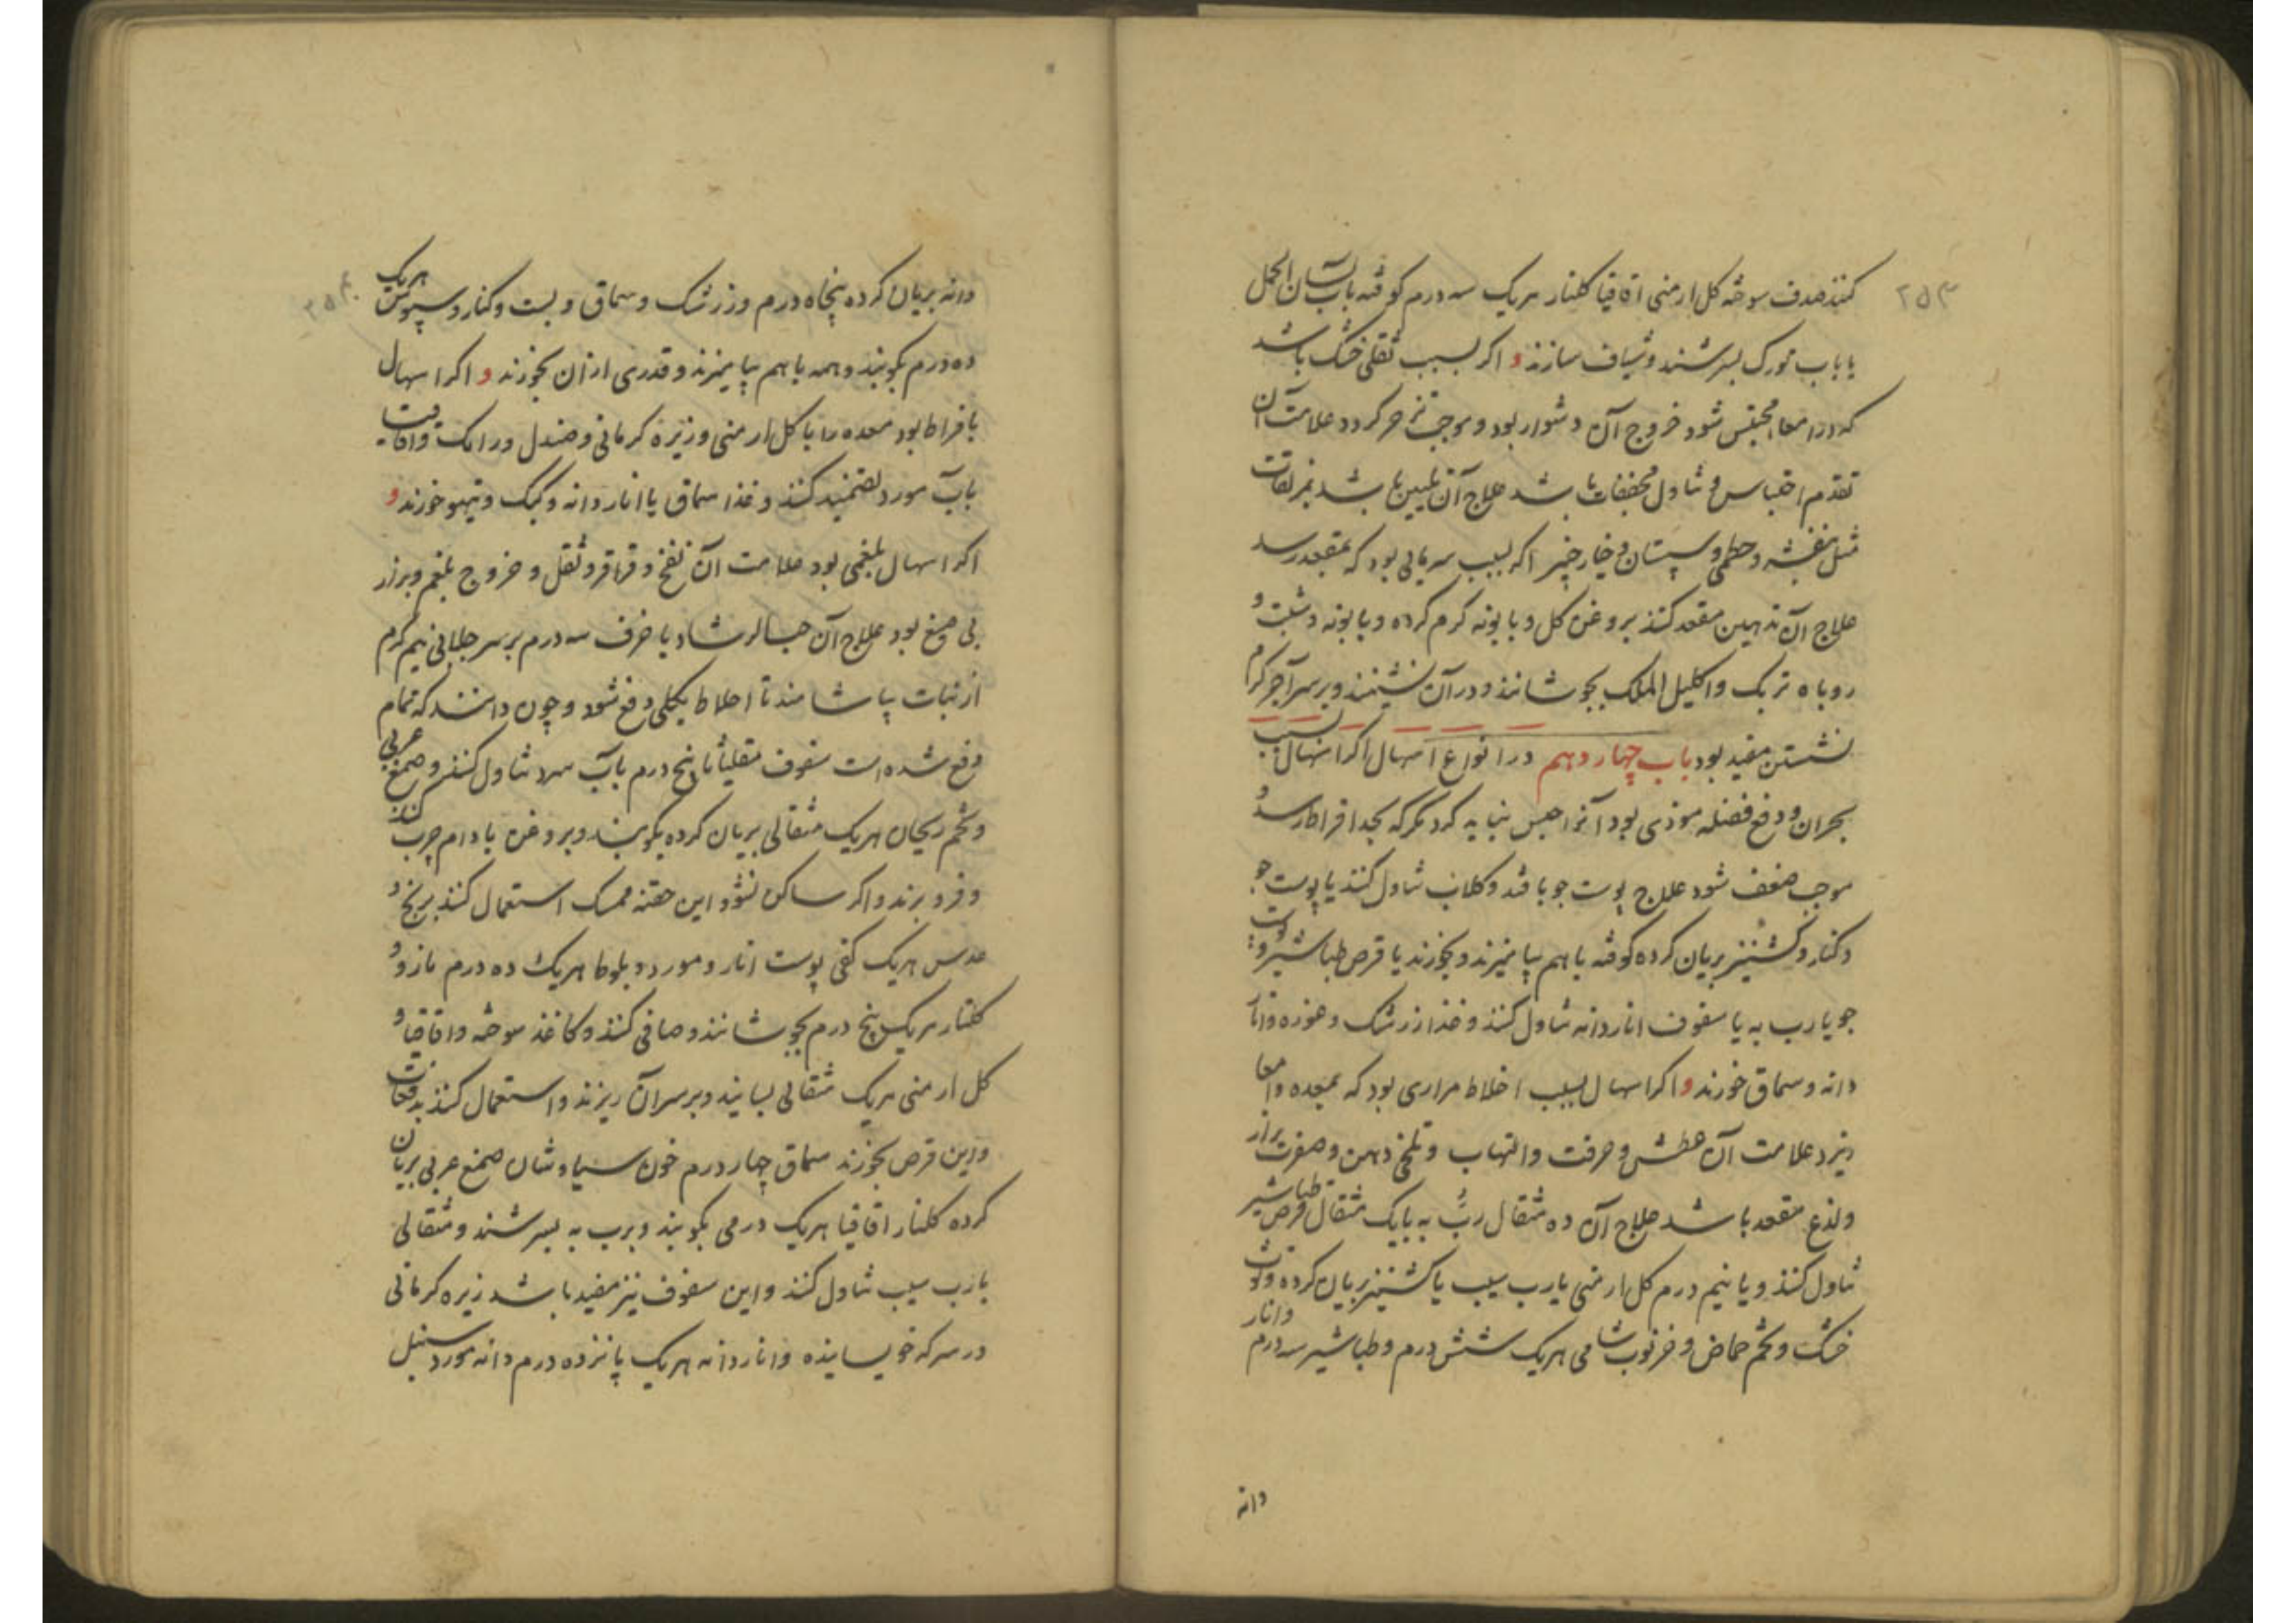 ۲۵۳
کنند صدف سوخته کل ارمنی اقاقیا کلنار هریک سه درم کوفته بآب لسان الحمل
یا بآب مورک بسرشند و شیاف سازند و اکر بسبب ثقلی خشک باشد
که در امعا محتبس شود خروج آن دشوار بود و موجب تزحر کردد علامت آن
تقدم احتباس و تناول مجففات باشد علاج آن تلیین باشد بمزلقات
مثل بنفشه و خطمی و سپستان و خیارچنبر اکر بسبب سرمایی بود که بمقعد رسد
علاج آن تدهین مقعد کنند بروغن کل و بابونه کرم کرده و بابونه و شبت و
روباه تربک و اکلیل الملک بجوشانند و در آن نشینند و بر سر آجر کرم
نشستن مفید بود باب چهاردهم در انواع اسهال اکر اسهال بسبب
بحران و دفع فضله موذی بود آنرا حبس نباید کرد مکر که بحد افراط رسد و
موجب ضعف شود علاج پوست جو با قند و کلاب تناول کنند یا پوست جو
و کنار و کشنیز بریان کرده کوفته باهم بیامیزند و بخورند یا قرص طباشیر و
جو یا رب به یا سفوف اناردانه تناول کنند و غذا زرشک و غوره و انار
دانه و سماق خورند و اکر اسهال بسبب اخلاط مراری بود که بمعده و امعا
ریزد علامت آن عطش و حرقت و التهاب و تلخی دهن و صفرت براز
ولذع مقعد باشد علاج آن ده مثقال رب به با یک مثقال قرص طباشیر
تناول کنند و یا نیم درم کل ارمنی با رب سیب یا کشنیز بریان کرده و توت
خشک و تخم حماض و خرنوب شامی هریک شش درم و طباشیر سه درم و انار
دانه
۲۵۴
دانه بریان کرده پنجاه درم و زرشک و سماق و بست و کنار و سپوس هریک
ده درم بکوبند و همه باهم بیامیزند و قدری ازان بخورند و اکر اسهال
بافراط بود معده را با کل ارمنی و زیره کرمانی و صندل و رامک و اقاقیا
بآب مورد تضمید کنند و غذا سماق یا اناردانه و کبک و تیهو خورند و
اکر اسهال بلغمی بود علامت آن نفخ و قراقر و ثقل و خروج بلغم و براز
بی صبغ بود علاج آن حب الرشاد یا حرف سه درم بر سر جلابی نیم کرم
از نبات بپاشامند تا اخلاط بکلی دفع شود و چون دانند که تمام
دفع شده است سفوف مقلیاثا پنج درم بآب سرد تناول کنند و صمغ عربی
و تخم ریحان هریک مثقالی بریان کرده بکوبند و بروغن بادام چرب کنند
و فرو برند و اکر ساکن نشود این حقنه ممسک استعمال کنند برنج و
عدس هریک کفی پوست انار و مورد و بلوط هریک ده درم مازو و
کلنار هریک پنج درم بجوشانند و صافی کنند و کاغذ سوخته و اقاقیا و
کل ارمنی هریک مثقالی بسایند و بر سر آن ریزند و استعمال کنند بدفعات
و این قرص بخورند سماق چهار درم خون سیاوشان صمغ عربی بریان
کرده کلنار اقاقیا هریک درمی بکوبند و برب به بسرشند و مثقالی
با رب سیب تناول کنند و این سفوف نیز مفید باشد زیره کرمانی
در سرکه خویسانیده و اناردانه هریک پانزده درم دانه مورد سنبل